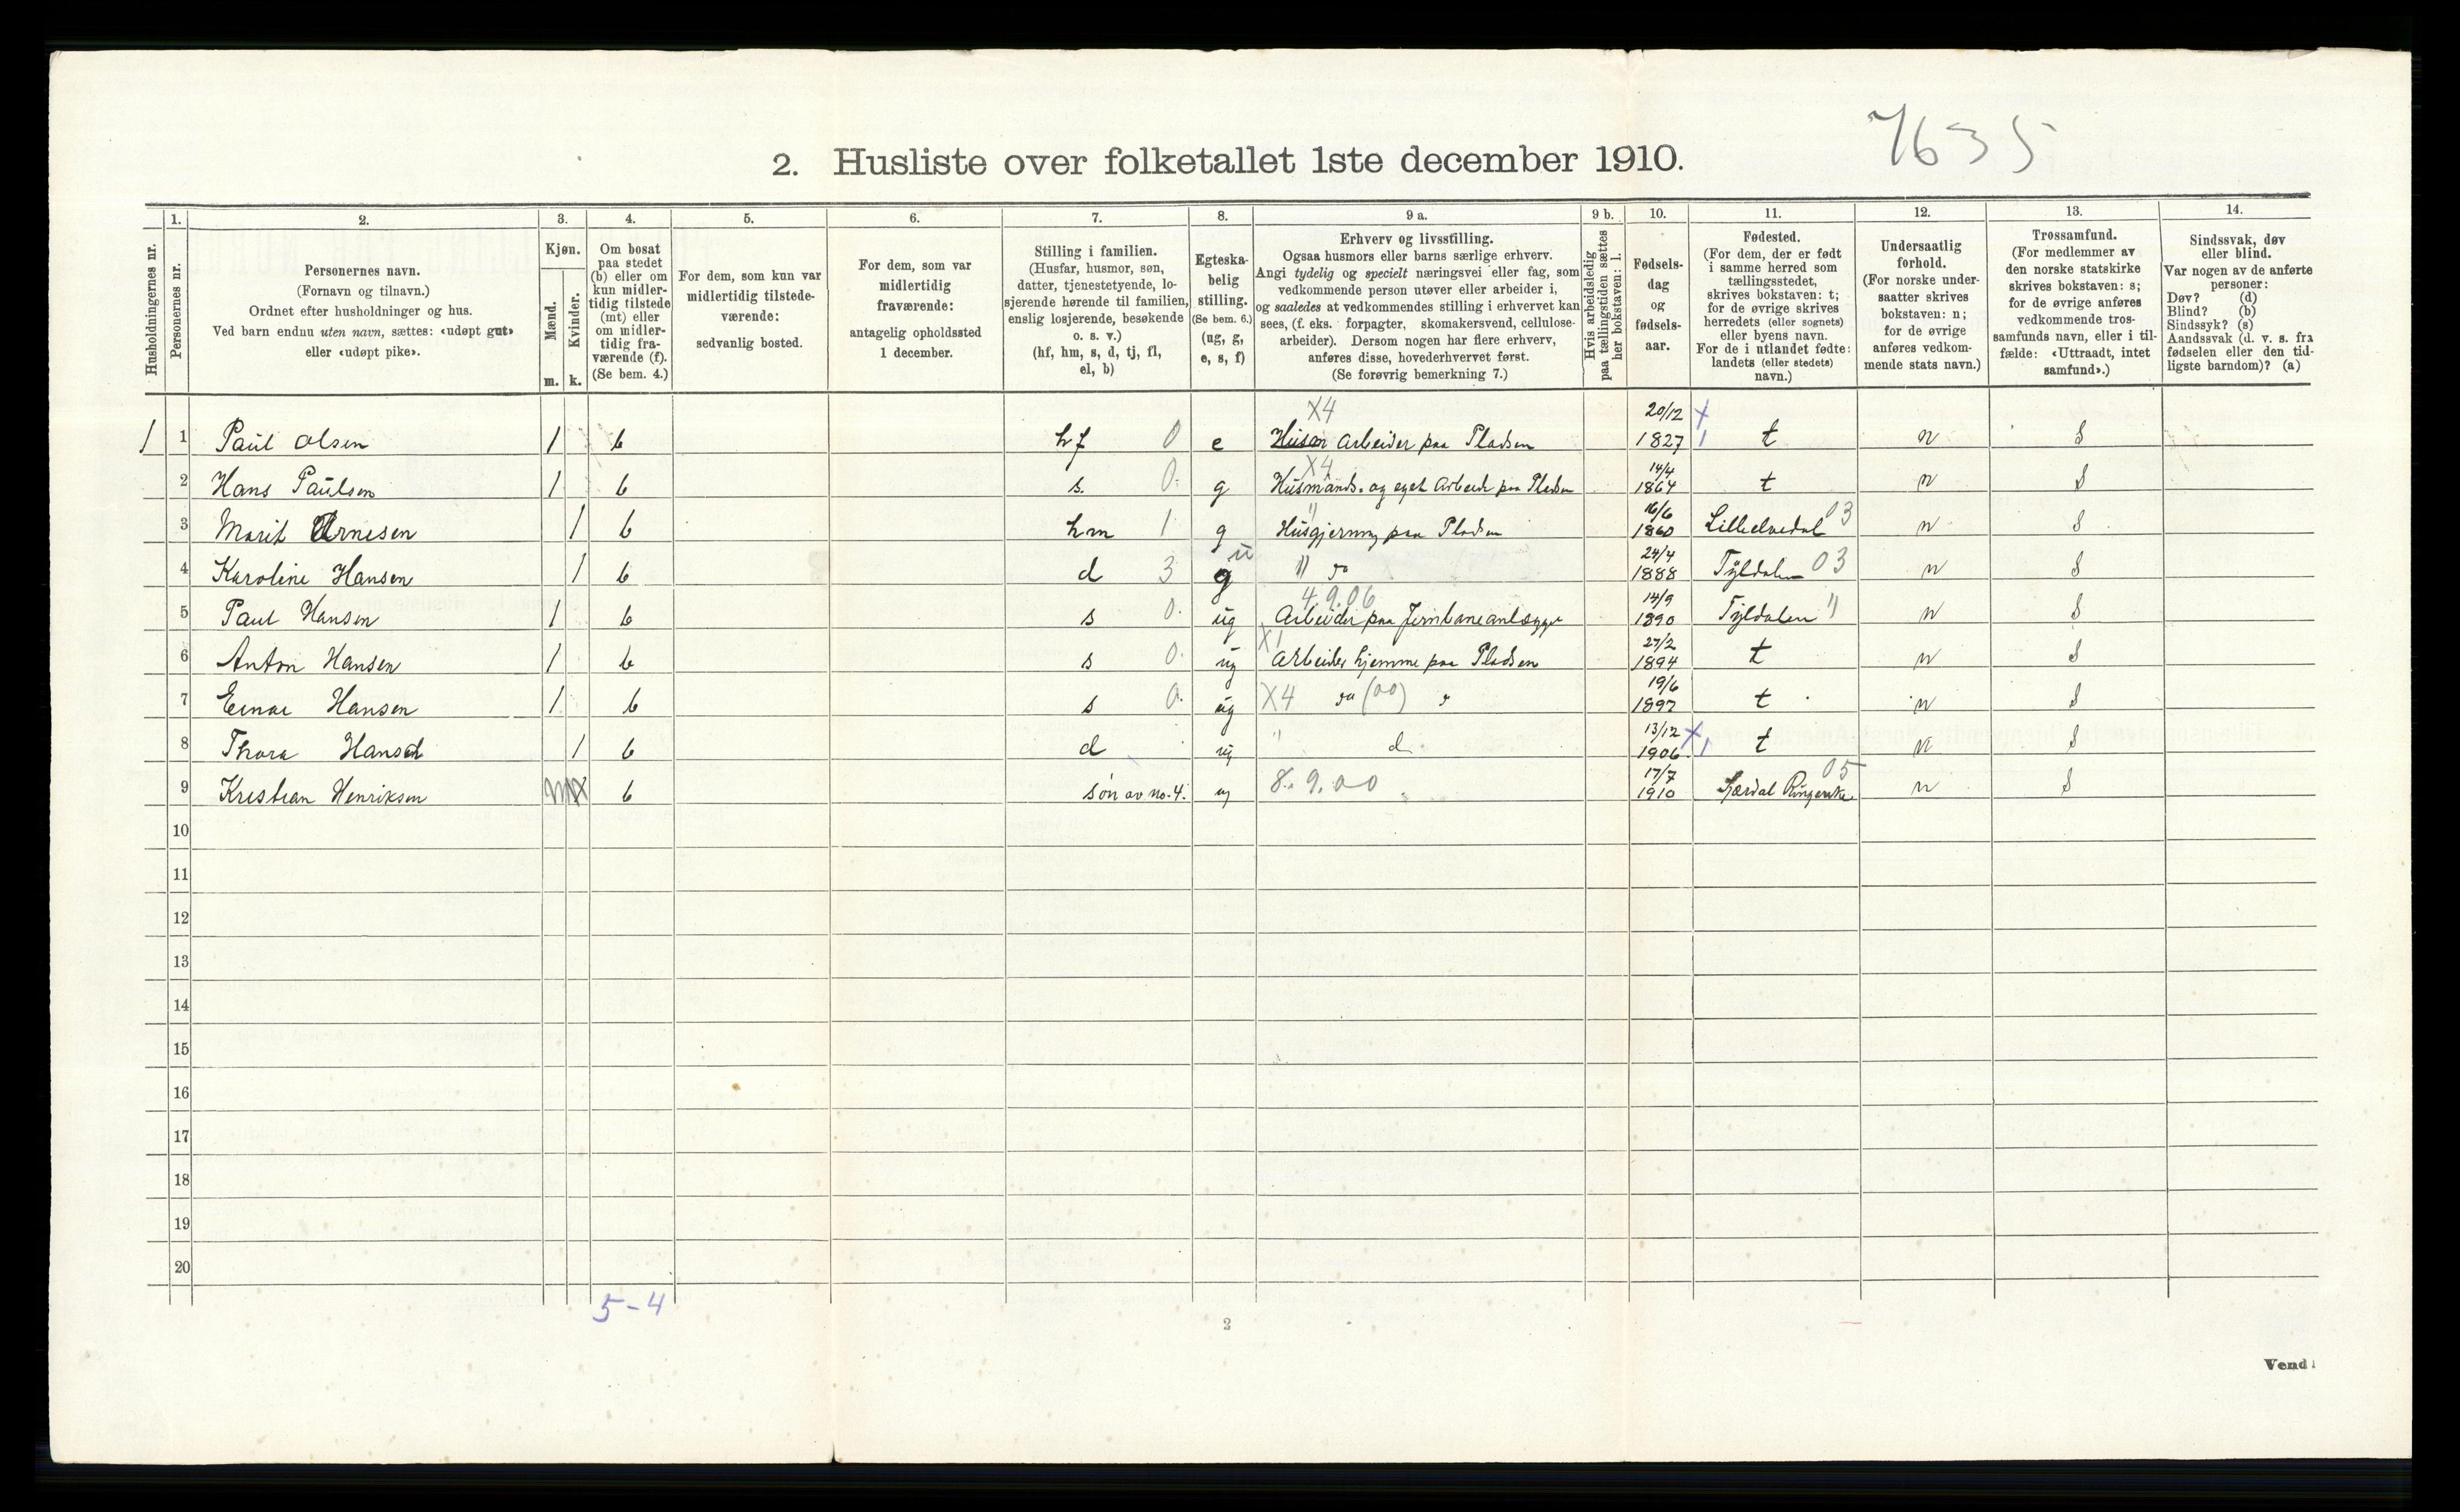 7635
2. Husliste over folketallet 1ste december 1910.
Husholdningernes nr.
1.
Personernes nr.
2.
Personernes navn.
(Fornavn og tilnavn.)
Ordnet efter husholdninger og hus.
Ved barn endnu uten navn, sættes: «udøpt gut»
eller «udøpt pike».
3.
Kjøn.
Mænd.
Kvinder.
m. k.
4.
Om bosat
paa stedet
(b) eller om
kun midler-
tidig tilstede
(mt) eller
om midler-
tidig fra-
værende (f).
(Se bem. 4.)
5.
For dem, som kun var
midlertidig tilstede-
værende:
sedvanlig bosted.
6.
For dem, som var
midlertidig
fraværende:
antagelig opholdssted
1 december.
7.
Stilling i familien.
(Husfar, husmor, søn,
datter, tjenestetyende, lo-
sjerende hørende til familien,
enslig losjerende, besøkende
o. s. v.)
(hf, hm, s, d, tj, fl,
el, b)
8.
Egteska-
belig
stilling.
(Se bem. 6.)
(ug, g,
e, s, f)
9 a.
Erhverv og livsstilling.
Ogsaa husmors eller barns særlige erhverv.
Angi tydelig og specielt næringsvei eller fag, som
vedkommende person utøver eller arbeider i,
og saaledes at vedkommendes stilling i erhvervet kan
sees, (f. eks. forpagter, skomakersvend, cellulose-
arbeider). Dersom nogen har flere erhverv,
anføres disse, hovederhvervet først.
(Se forøvrig bemerkning 7.)
9 b.
Hvis arbeidsledig
paa tællingstiden sættes
her bokstaven: l.
10.
Fødsels-
dag
og
fødsels-
aar.
11.
Fødested.
(For dem, der er født
i samme herred som
tællingsstedet,
skrives bokstaven: t;
for de øvrige skrives
herredets (eller sognets)
eller byens navn.
For de i utlandet fødte:
landets (eller stedets)
navn.)
12.
Undersaatlig
forhold.
(For norske under-
saatter skrives
bokstaven: n;
for de øvrige
anføres vedkom-
mende stats navn.)
13.
Trossamfund.
(For medlemmer av
den norske statskirke
skrives bokstaven: s;
for de øvrige anføres
vedkommende tros-
samfunds navn, eller i til-
fælde: «Uttraadt, intet
samfund».)
14.
Sindssvak, døv
eller blind.
Var nogen av de anførte
personer:
Døv? (d)
Blind? (b)
Sindssyk? (s)
Aandssvak (d. v. s. fra
fødselen eller den tid-
ligste barndom)? (a)
X4 20/12 x
1 1 Paul Olsen 1 b hf 0 e Arbeider paa Pladsen 1827 1 t n S
X4 14/4
2 Hans Paulsen 1 b s. 0. g Husmands- og eget Arbeide paa Pladsen 1864 t n S
" 16/6 03
3 Marit Arnesen 1 b hm 1 g Husgjerning paa Pladsen 1860 Lilleelvedal n S
u 24/4
4 Karoline Hansen 1 b d 3 g " 1888 Tyldalen 03 n S
4.9.06 14/9
5 Paul Hansen 1 b s 0. ug Arbeider paa Jernbaneanlægge 1890 Tyldalen " n S
X1 27/2
6 Anton Hansen 1 b s 0. ug Arbeider hjemme paa Pladsen 1894 t n S
19/6
7 Einar Hansen 1 b s 0. ug X4 (00) 1897 t n S
13/12 x
8 Thora Hansen 1 b d ug " d 1906 1 t n S
17/7 05
9 Kristian Henriksen b søn av no. 4. ug 8.9.00 1910 Ringerike n S
10
11
12
13
14
15
16
17
18
19
20
5-4
2
Vend!